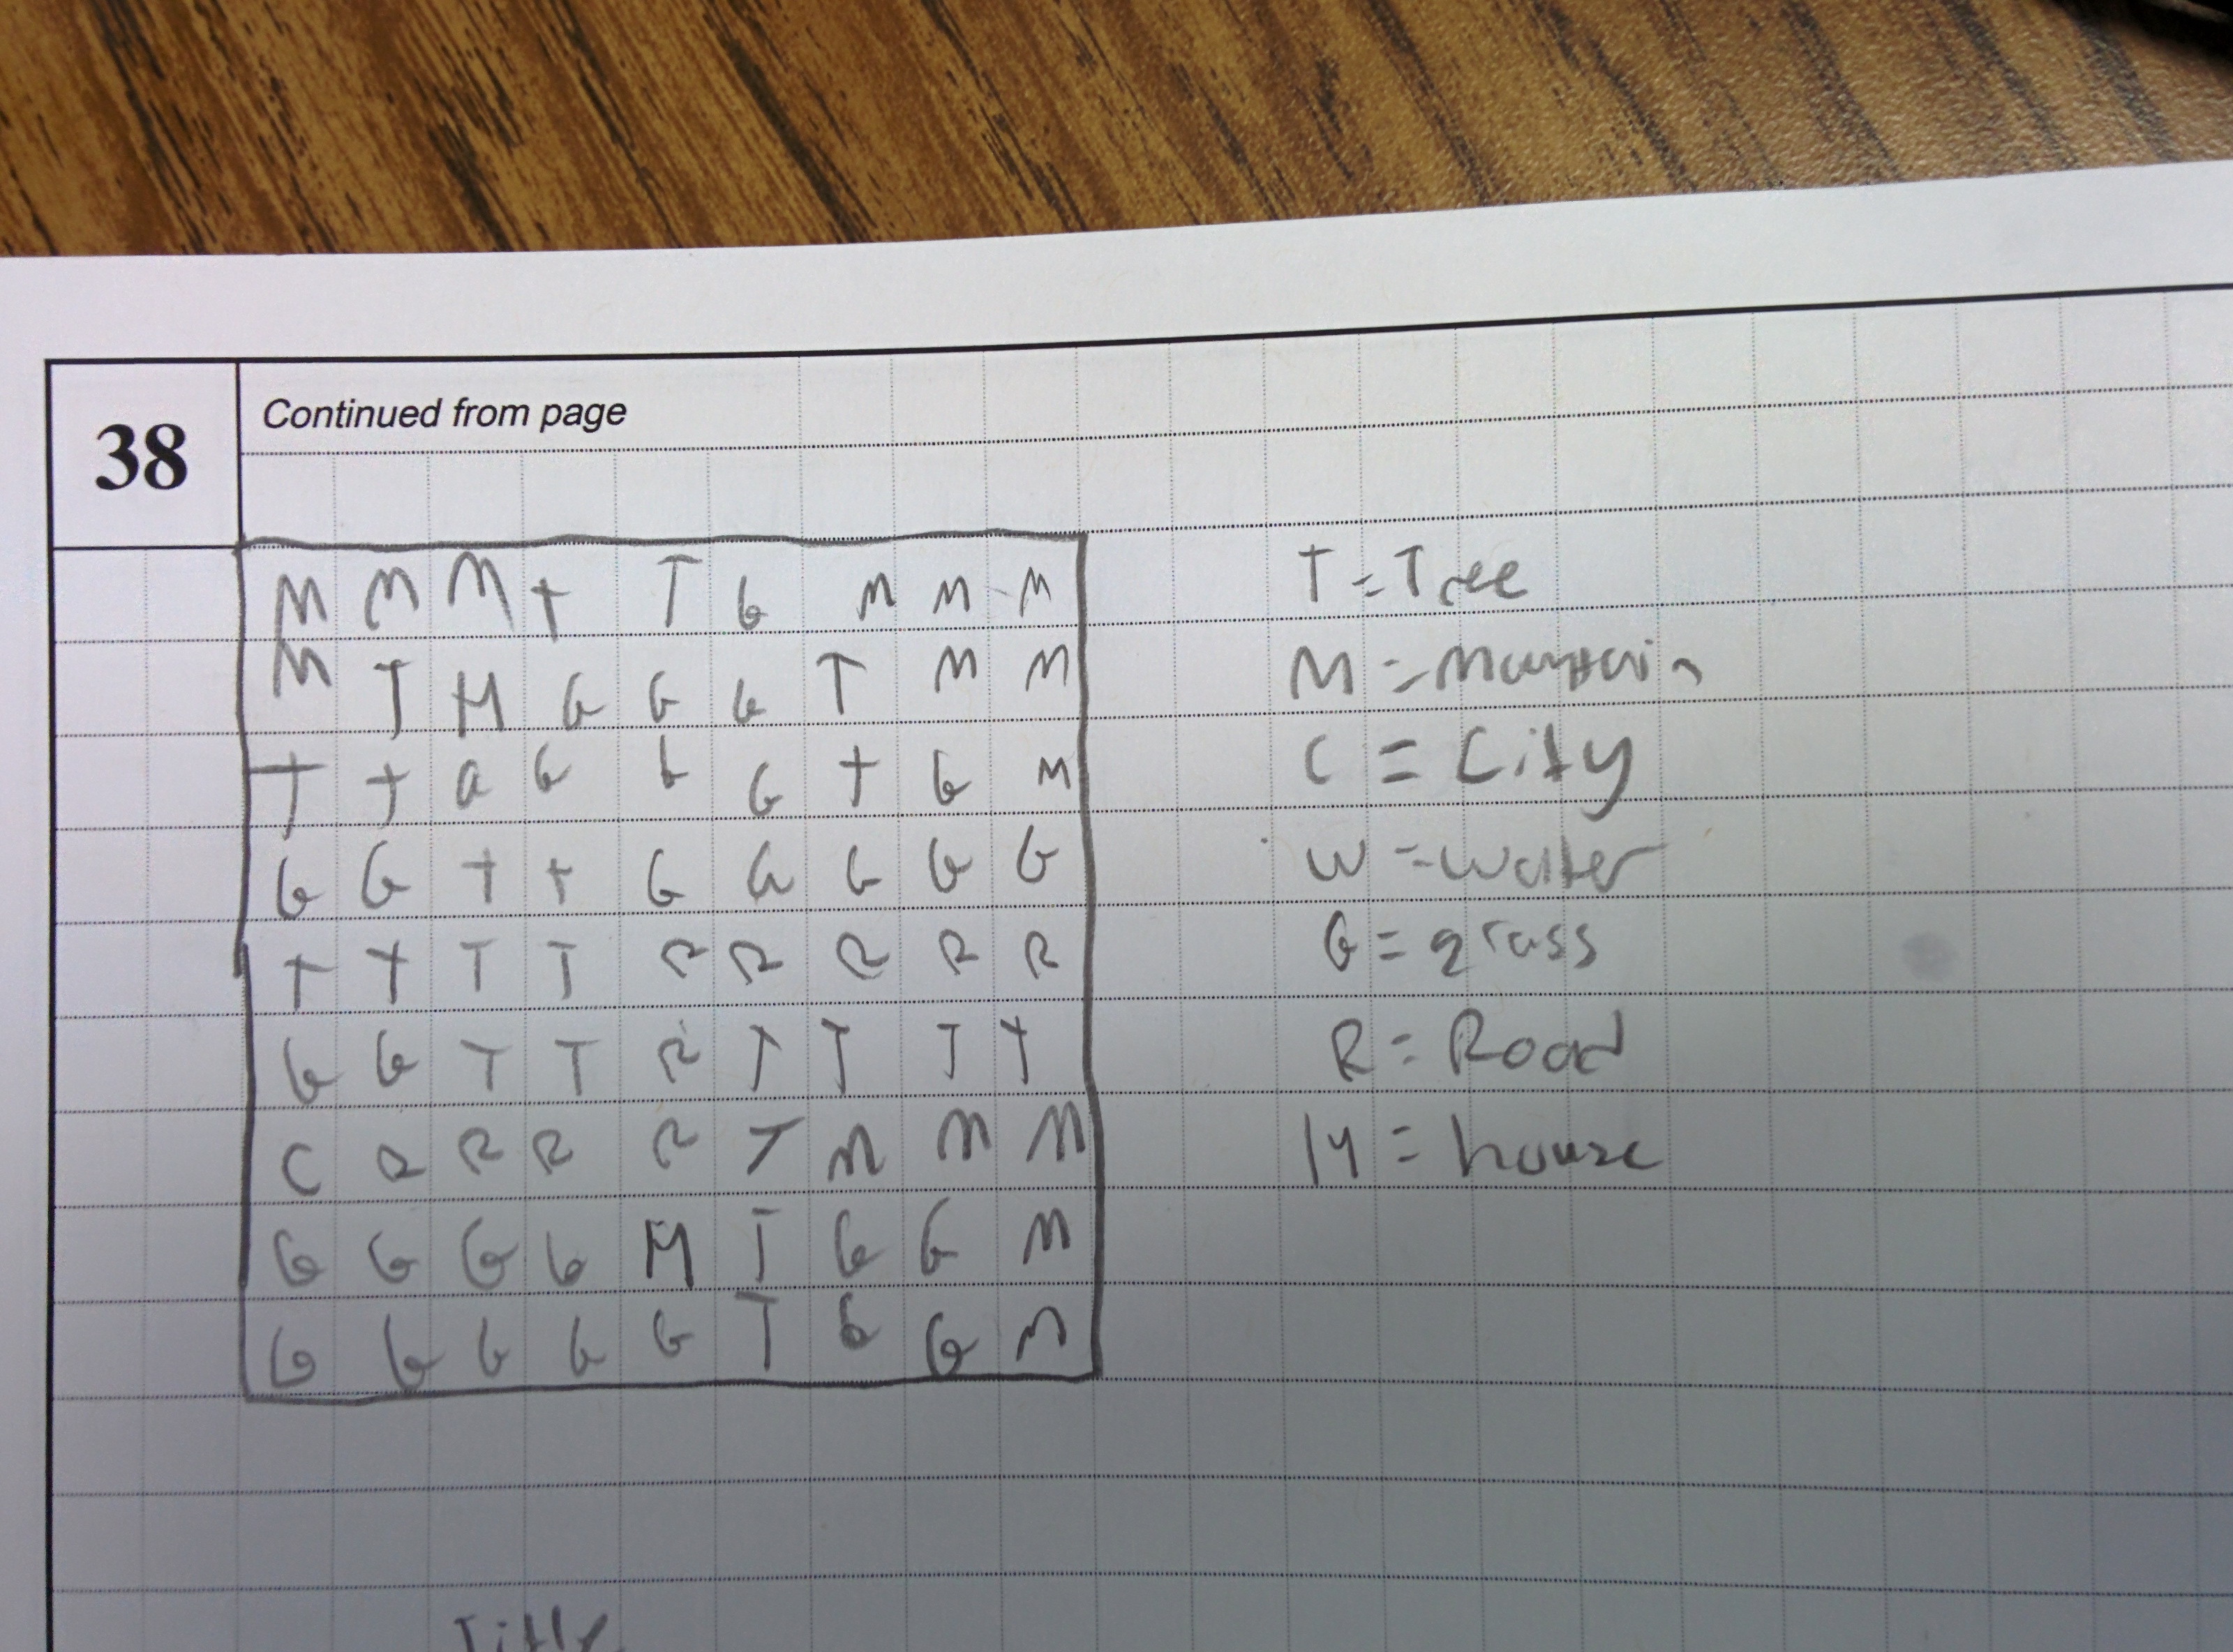 38
Continued from page
M M M T T G M M M
M T M G G G T M M
T T G G G G T G M
G G T T G G G G G
T T T T R R R R R
G G T T R T T T T
C R R R R T M M M
G G G G M T G G M
G G G G G T G G M
T = Tree
M = Mountain
C = City
W = Water
G = grass
R = Road
H = house
Title